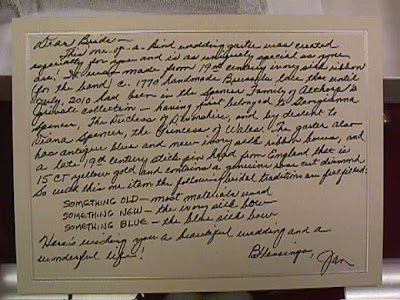 Dear Bride —
This one-of-a-kind wedding garter was created
especially for you and is as uniquely special as you
are. It was made from 19th century ivory silk ribbon
(for the band) c. 1770 handmade Brussels lace that until
July, 2010 had been in the Spencer Family of Althorp's
private collection — having first belonged to Georgianna
Spencer, The Duchess of Devonshire, and by descent to
Diana Spencer, the Princess of Wales. The garter also
has antique blue and new ivory silk ribbon bows, and
a late 19th century stick pin head from England that is
15 CT yellow gold and contains a genuine rose cut diamond
So with this one item the following bridal traditions are fulfilled:
SOMETHING OLD — most materials used
SOMETHING NEW — the ivory silk bow
SOMETHING BLUE — the blue silk bow
Here's wishing you a beautiful wedding and a
wonderful life!
Blessings,
Jan